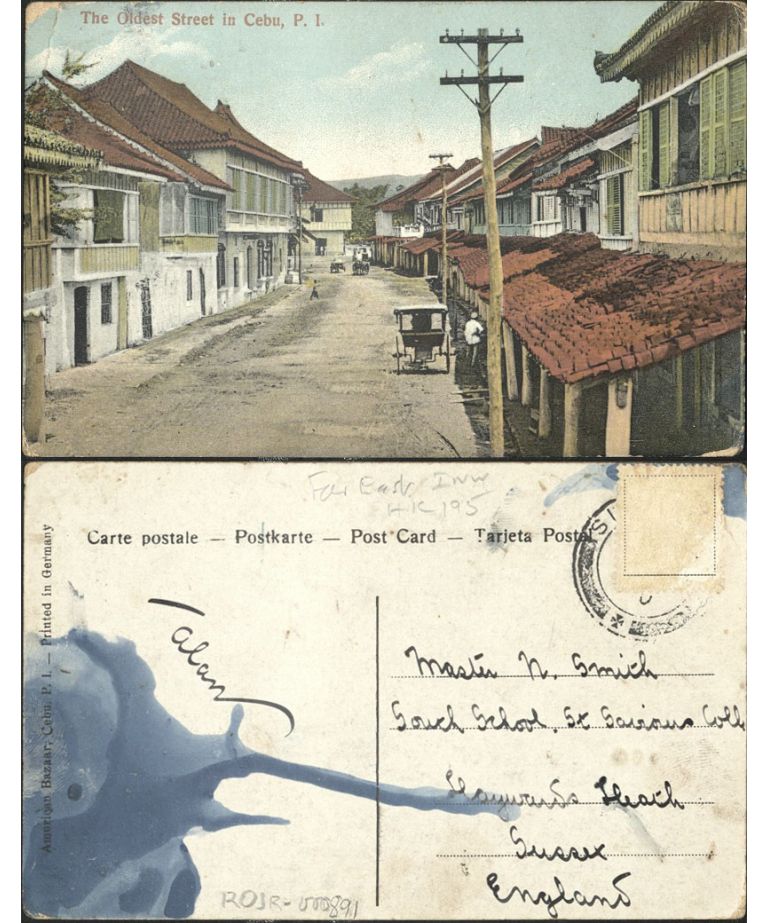 The Oldest Street in Cebu, P. I.
Far East Inw
HK195
Carte postale — Postkarte — Post Card — Tarjeta Postal
American Bazaar, Cebu, P. I. — Printed in Germany
alan
Master N. Smith
South School, St Saviours Coll
Haywards Heath
Sussex
England